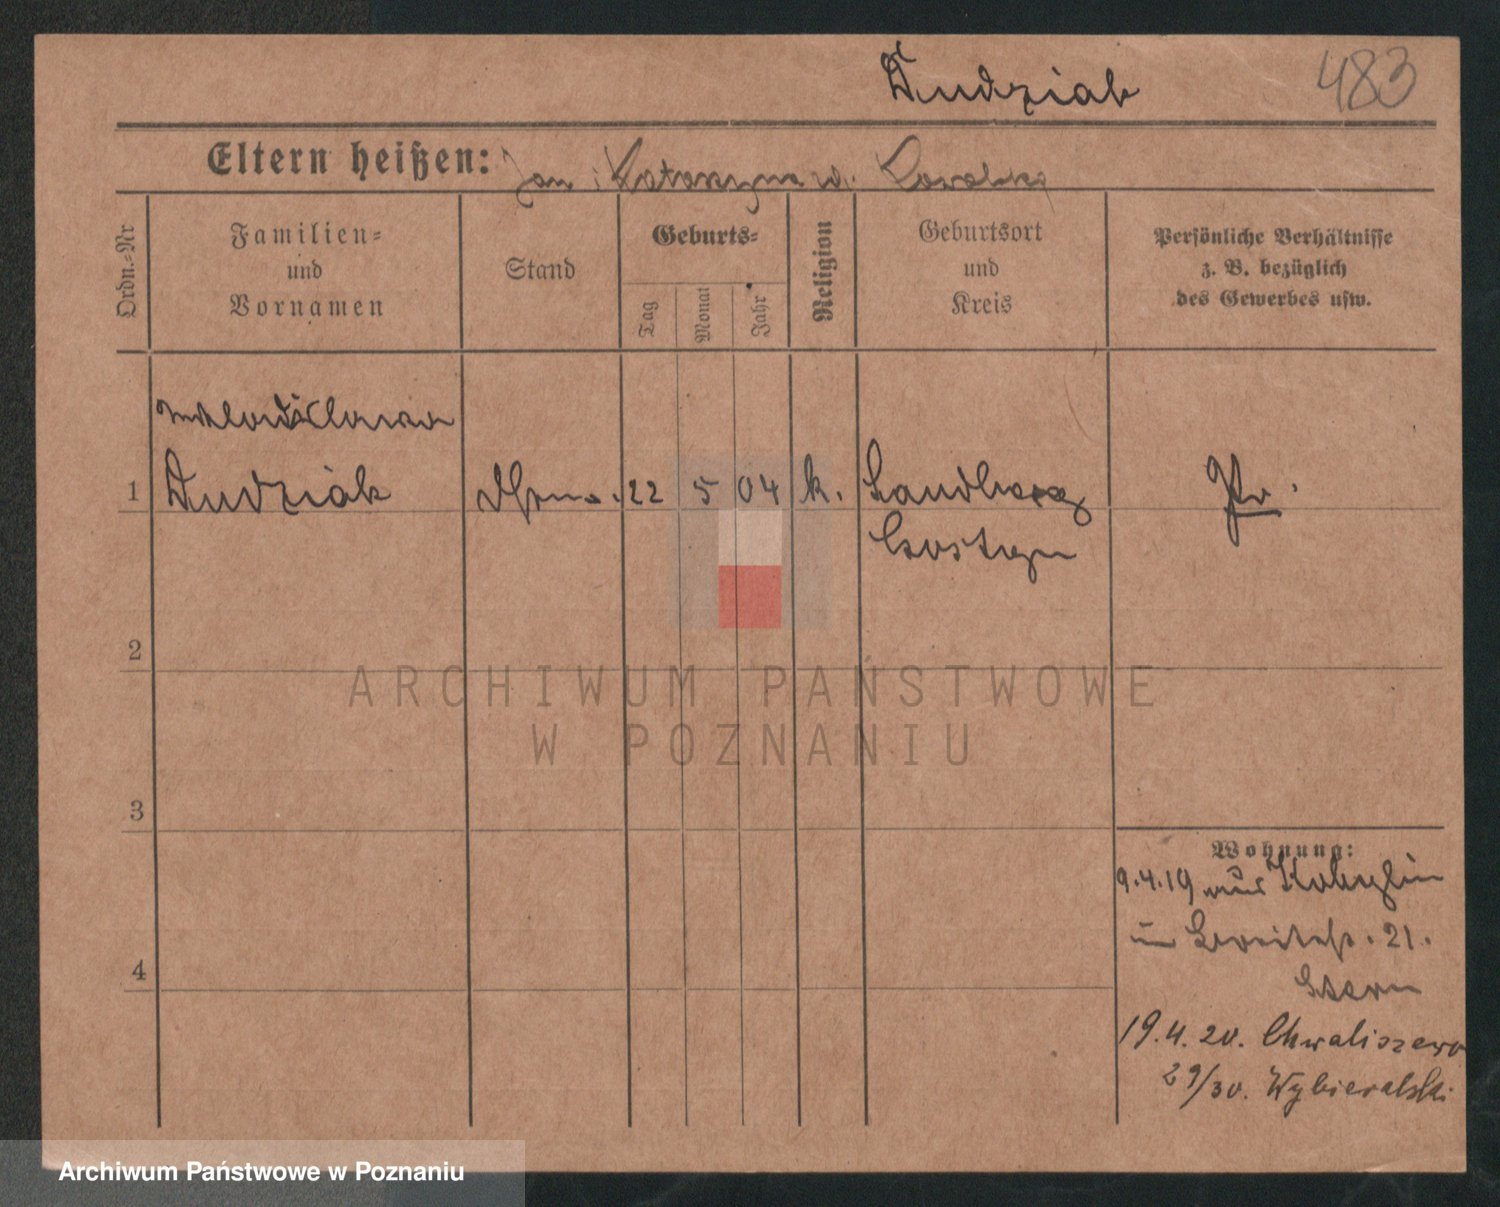 Dudziak 483
Eltern heißen: Jan i Katarzyna
Ordn.-Nr
Familien-
und
Vornamen
Stand
Geburts-
Tag
Monat
Jahr
Religion
Geburtsort
und
Kreis
Persönliche Verhältnisse
z. B. bezüglich
des Gewerbes usw.
Wladislawa
1 Dudziak 22 5 04 k. Sandberg Pr.
Gostyn
2
3
4
Wohnung:
9.4.19 aus Kobylin
in Breitestr. 21.
Stern
19.4.20. Chwaliszewo
29/30. Wybieralski
ARCHIWUM PAŃSTWOWE
W POZNANIU
Archiwum Państwowe w Poznaniu